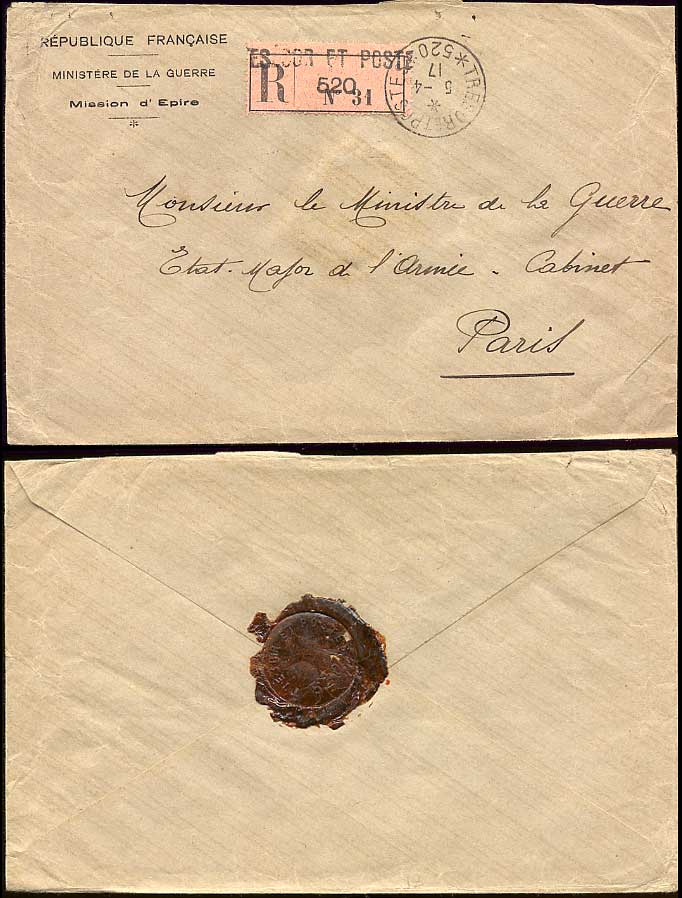 RÉPUBLIQUE FRANÇAISE
MINISTÈRE DE LA GUERRE
Mission d'Epire
R
TRESOR ET POSTES
520
Nº 31
TRESOR ET POSTES
*520*
5-4
17
*
Monsieur le Ministre de la Guerre
Etat-Major de l'Armée - Cabinet
Paris